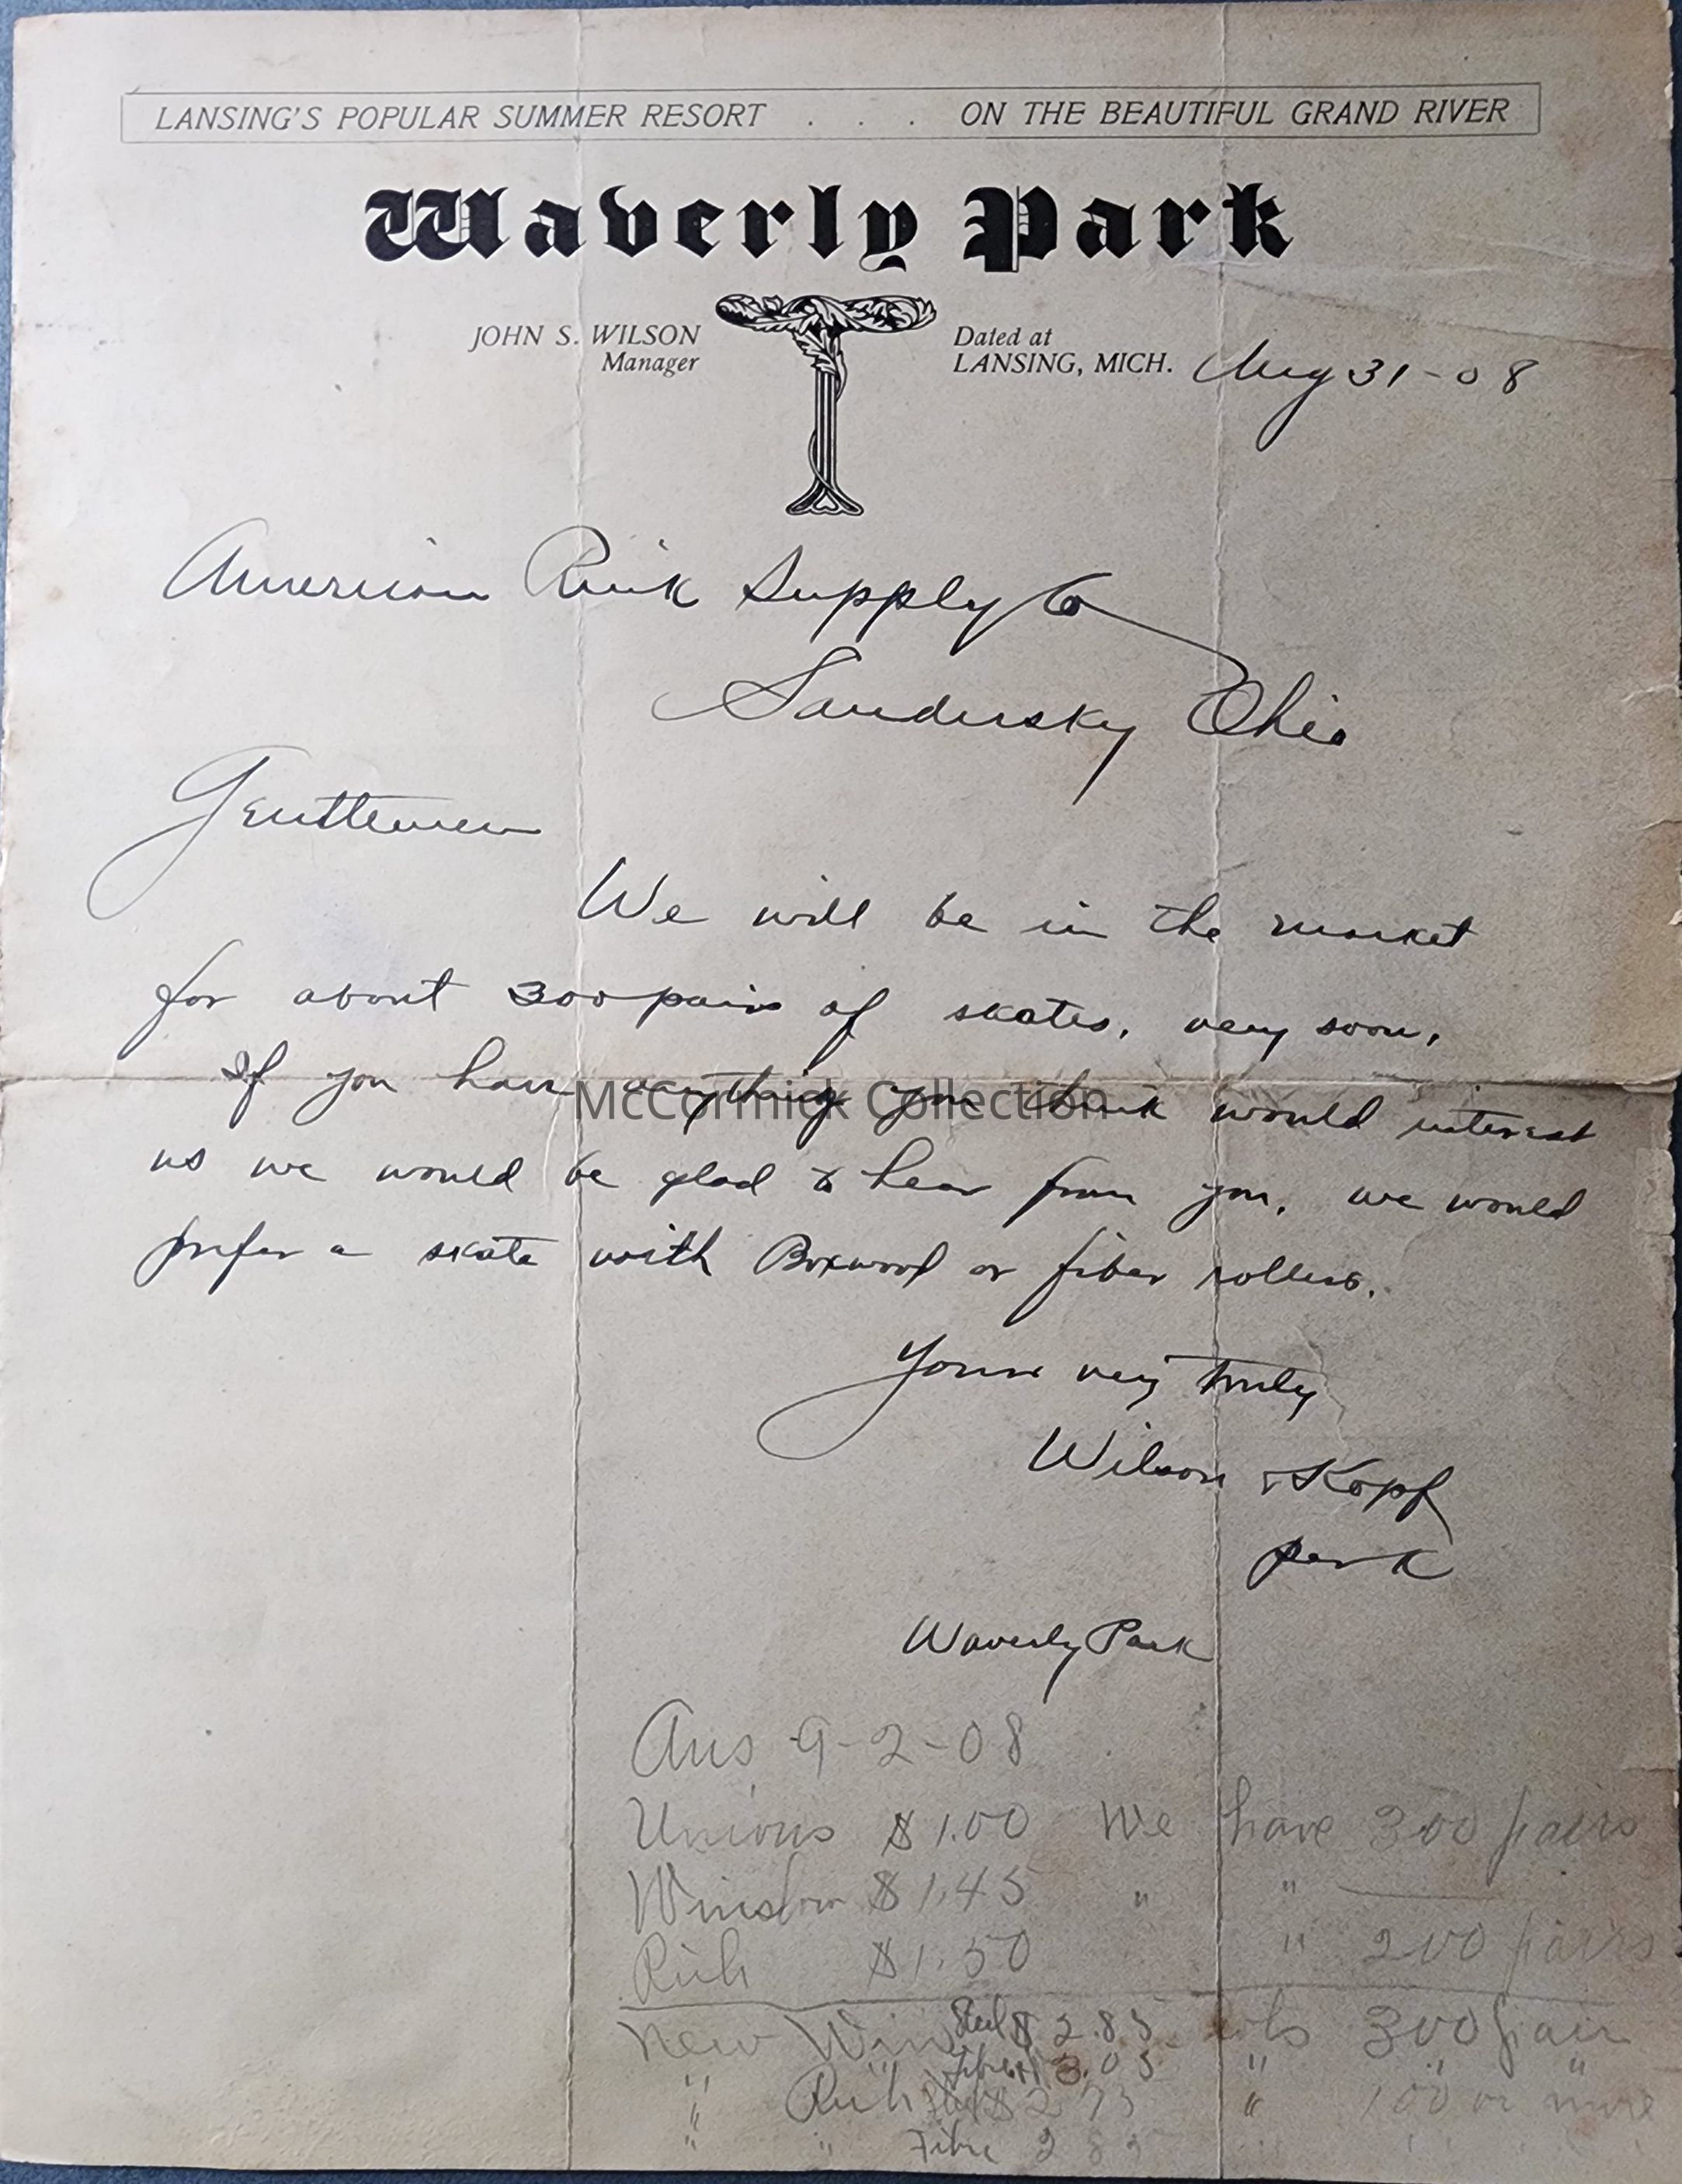 LANSING'S POPULAR SUMMER RESORT . . . ON THE BEAUTIFUL GRAND RIVER
Waverly Park
JOHN S. WILSON
Manager
Dated at
LANSING, MICH. Aug 31-08
American Rink Supply Co
Sandusky Ohio
Gentlemen
We will be in the market
for about 300 pairs of skates, very soon.
If you have anything you think would interest
us we would be glad to hear from you, we would
prefer a skate with Boxwood or fiber rollers.
McCormick Collection
Yours very truly
Wilson & Kopf
park
Waverly Park
Ans 9-2-08
Unions $1.00 We have 300 pairs
Winslow $1.45 " "
Rich $1.50 " 200 pairs
New Win Steel $2.85 lots 300 pair
" " 3.05 " " "
" Rich $2 75 " 100 or more
" " Fibre 2 85